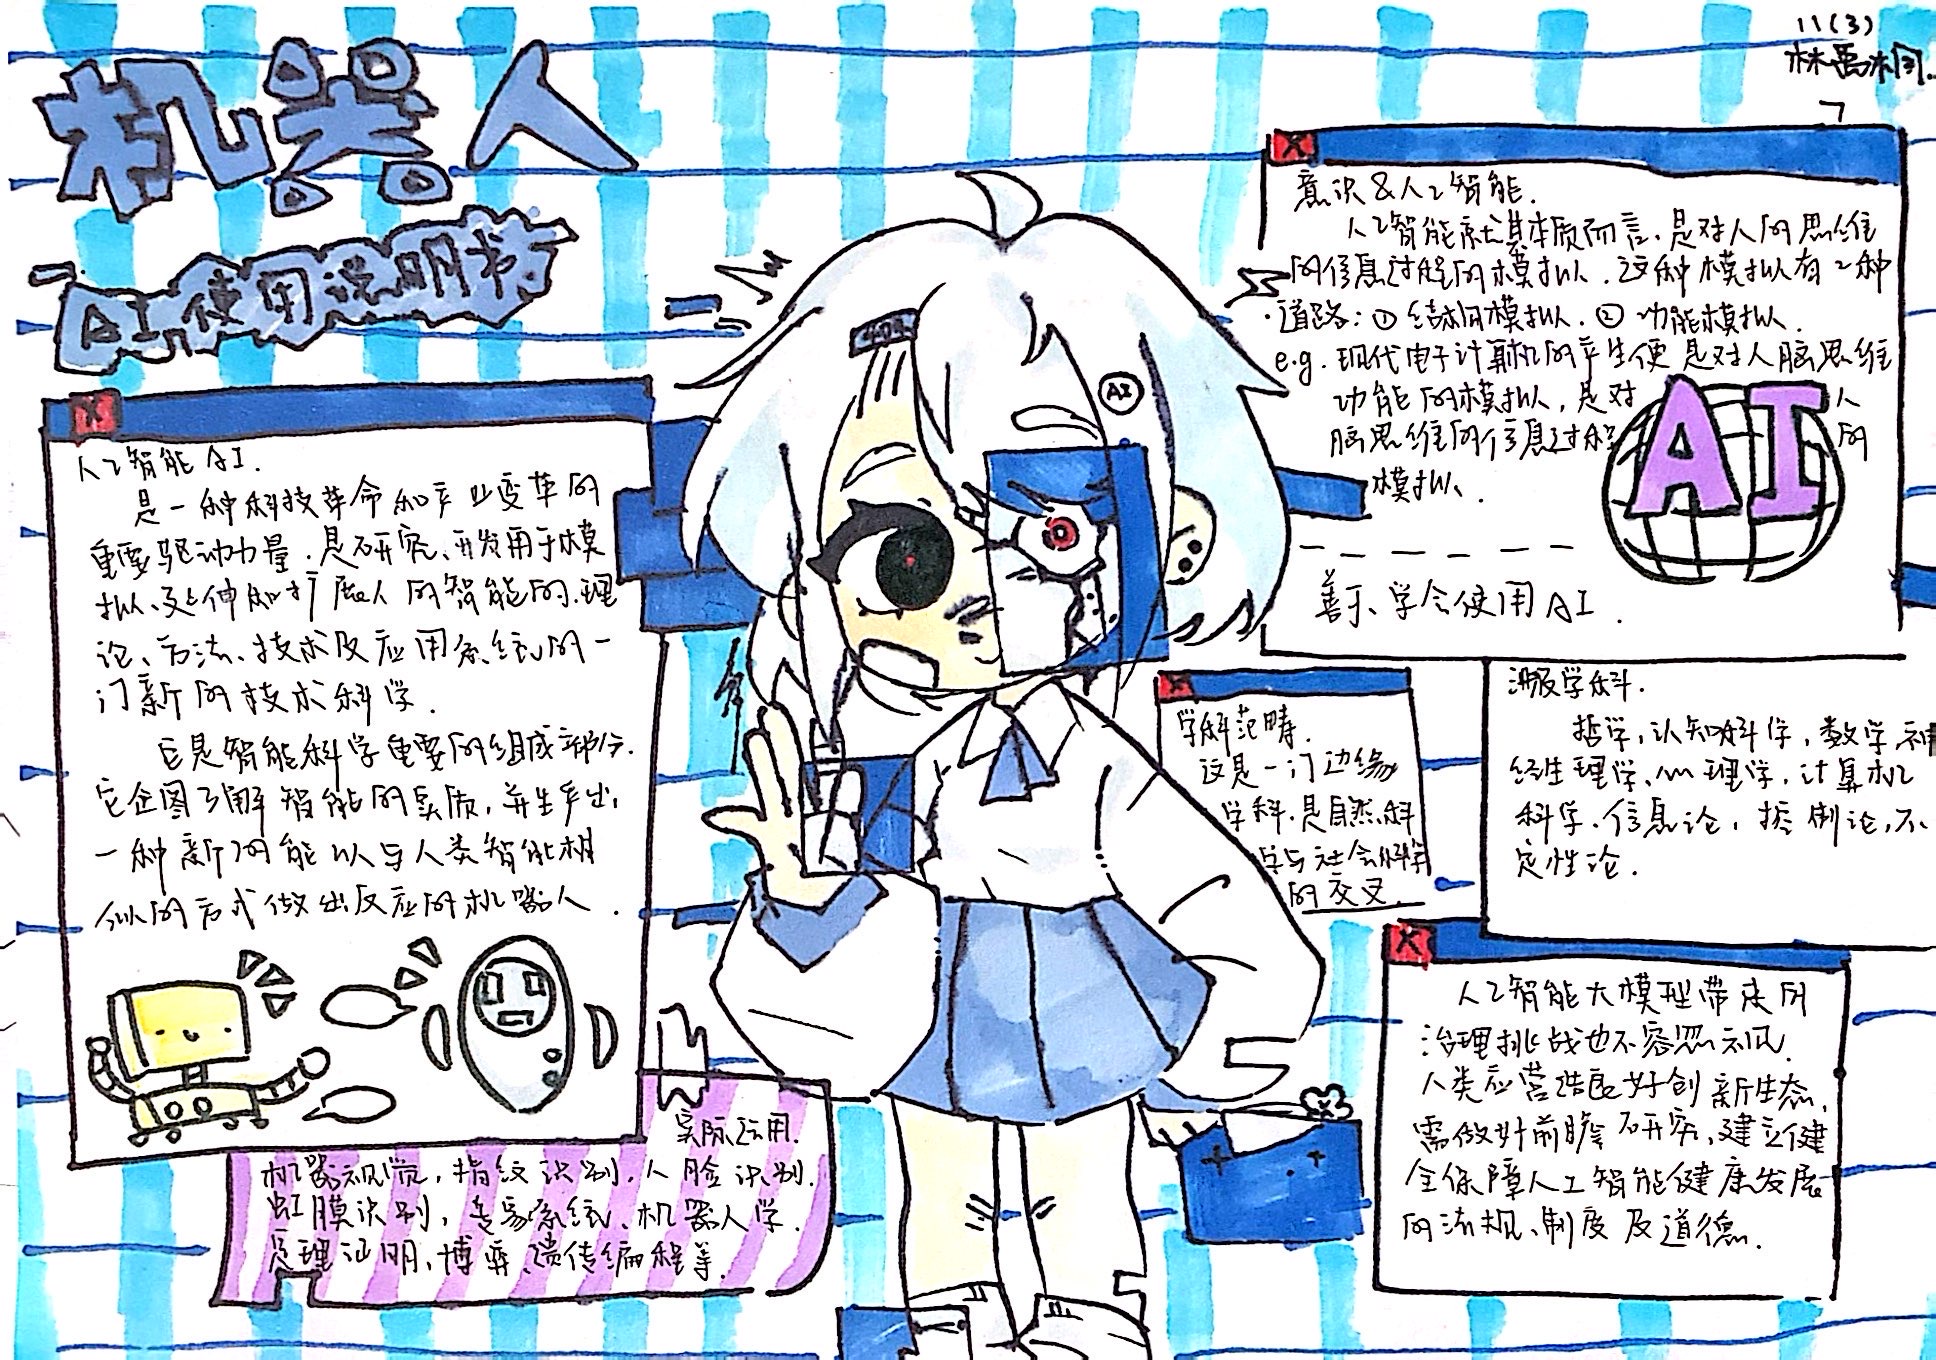 11(3)
机器人
—AI使用说明书
人工智能AI.
是一种科技革命和产业变革的
重要驱动力量.是研究、开发用于模
拟、延伸和扩展人的智能的理
论、方法、技术及应用系统的一
门新的技术科学.
它是智能科学重要的组成部分.
它企图了解智能的实质,并生产出
一种新的能以与人类智能相
似的方式做出反应的机器人.
实际运用.
机器视觉,指纹识别,人脸识别.
虹膜识别,专家系统、机器人学.
定理证明,博弈、遗传编程等.
AI
意识&人工智能.
人工智能就其本质而言,是对人的思维
的信息过程的模拟.这种模拟有2种
·道路:①结构模拟.②功能模拟.
e.g.现代电子计算机的产生便是对人脑思维
功能的模拟,是对人
脑思维的信息过程的
模拟.
AI
善于、学会使用AI.
学科范畴.
这是一门边缘
学科.是自然科
学与社会科学
的交叉.
涉及学科.
哲学,认知科学,数学,神
经生理学、心理学,计算机
科学.信息论,控制论,不
定性论.
人工智能大模型带来的
治理挑战也不容忽视.
人类应营造良好创新生态,
需做好前瞻研究,建立健
全保障人工智能健康发展
的法规、制度及道德.